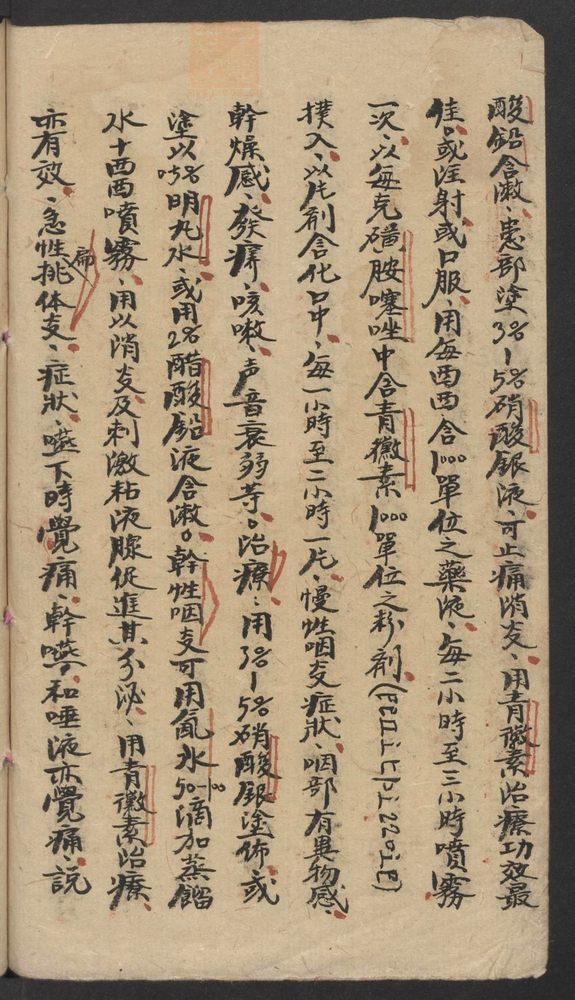 酸鉛含漱、患部塗3%—5%硝酸銀液、可止痛消炎、用青黴素治療功效最
佳。或注射或口服、用每西西含1000單位之藥液、每二小時至三小時噴霧
一次、以每克磺胺噻唑中含青黴素1000單位之粉劑
撲入、以片劑含化口中、每一小時至二小時一片、慢性咽炎症狀、咽部有異物感、
幹燥感、發癢、咳嗽、声音衰弱等。治療：用3%—5%硝酸銀塗佈、或
塗以0.5%明九水、或用2%醋酸鉛液含漱。幹性咽炎可用氨水50—100滴加蒸餾
水十西西噴霧、用以消炎及刺激粘液腺促進其分泌、用青黴素治療、
亦有效、急性扁挑体炎、症狀、嚥下時覺痛、幹嚥和唾液亦覺痛、説